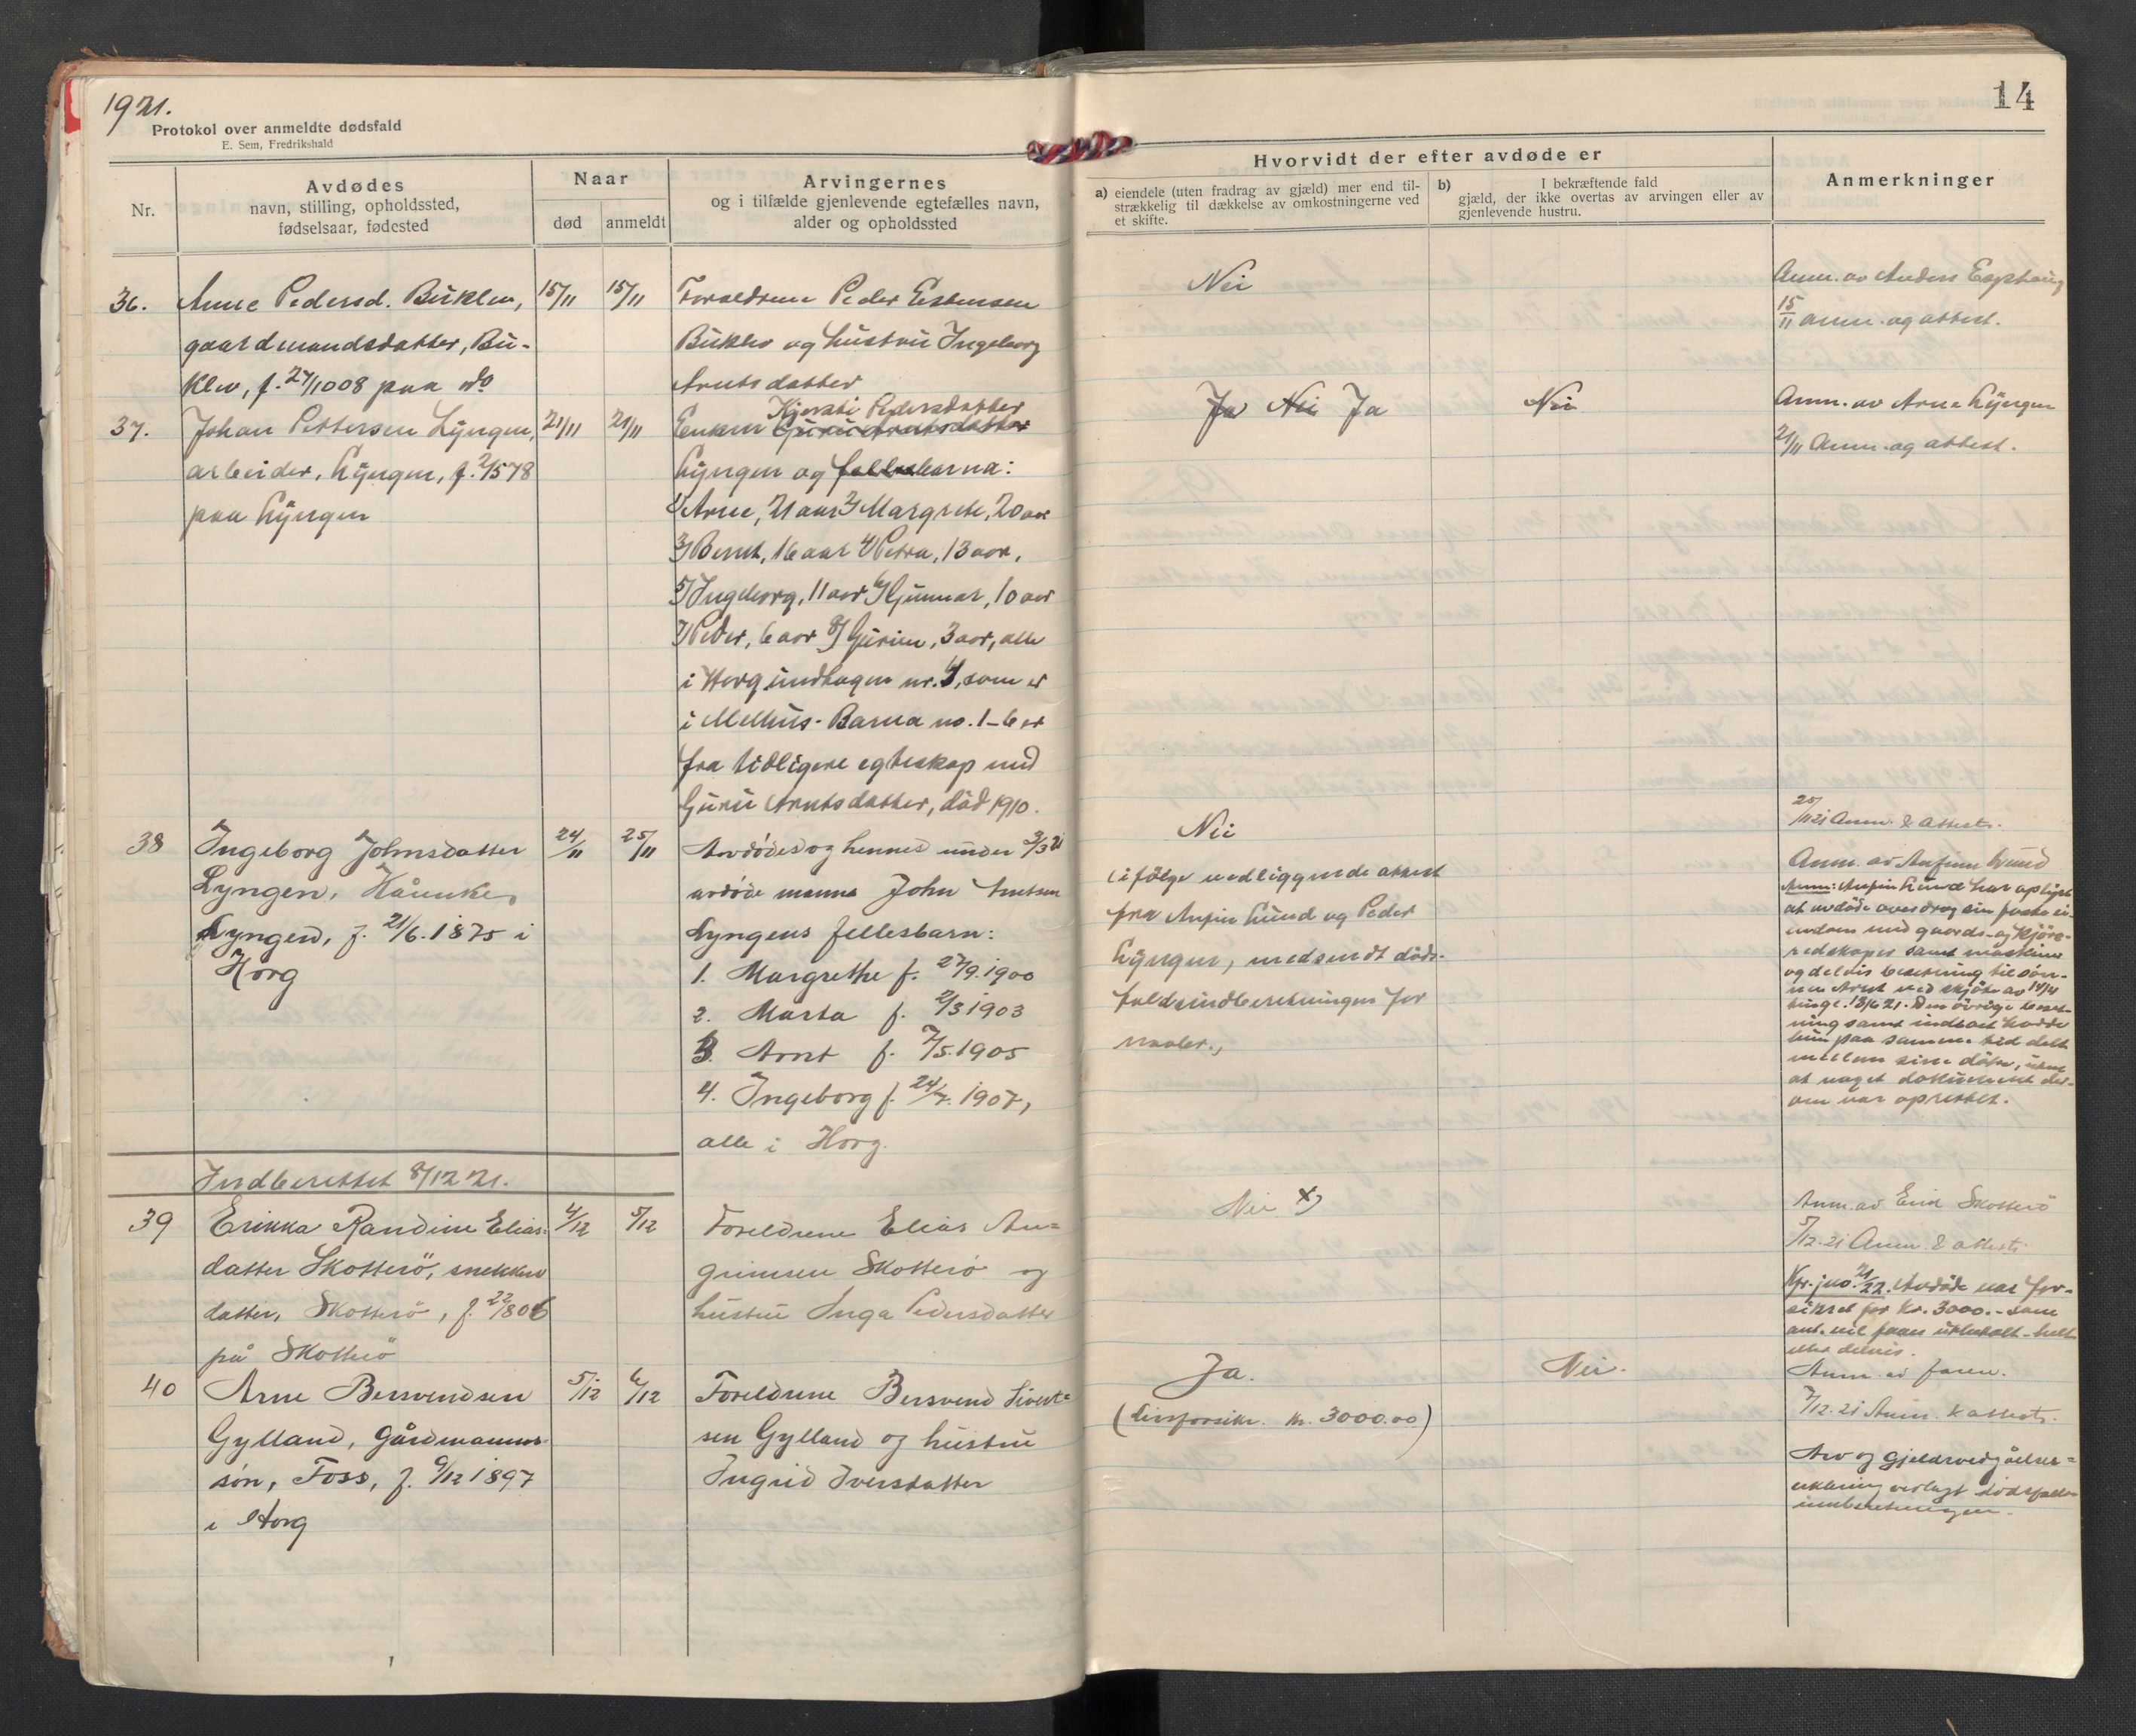 1921.
Protokol over anmeldte dødsfald
E. Sem, Fredrikshald
Nr.
Avdødes
navn, stilling, opholdssted,
fødselsaar, fødested
Naar
død
anmeldt
Arvingernes
og i tilfælde gjenlevende egtefælles navn,
alder og opholdssted
36.
Anne Pedersd. Buklev,
gaardmandsdatter, Bu-
klev, f. 27/1008 paa do
15/11
15/11
Foreldrene Peder Estensen
Buklev og hustru Ingeborg
Arntsdatter
37.
Johan Pettersen Lyngen,
arbeider, Lyngen, f. 2/578
paa Lyngen
21/11
21/11
Kjersti Pedersdatter
Enken Guru Arntsdatter
Lyngen og fellesbarna:
1/ Arne, 21 aar 2/ Margrete, 20 aar
3/ Bernt, 16 aar 4/ Petra, 13 aar,
5/ Ingeborg, 11 aar 6/ Gunnar, 10 aar
7/ Peder, 6 aar 8/ Gurine, 3 aar, alle
i Horg undtagen nr. 4, som er
i Melhus. Barna no. 1-6 er
fra tidligere egteskap med
Guru Arntsdatter, død 1910.
38
Ingeborg Johnsdatter
Lyngen, Kårenke,
Lyngen, f. 21/6. 1875 i
Horg
24/11
25/11
Avdødes og hennes under 3/3 21
avdøde manns John Arntsen
Lyngens fellesbarn:
1. Margrethe f. 27/9. 1900
2. Marta f. 2/3 1903
3. Arnt f. 7/5. 1905
4. Ingeborg f. 24/7. 1907,
alle i Horg.
Indberettet 8/12 21.
39
Erikka Randine Elias-
datter Skotterö, snekker
datter, Skotterö, f. 22/806
på Skotterö
4/12
5/12
Foreldrene Elias An=
grimsen Skotterö og
hustru Inga Pedersdatter
40
Arne Bersvendsen
Gylland, Gårdmanns-
søn, Foss, f. 9/12 1897
i Horg
5/12
6/12
Foreldrene Bersvend Sivert=
sen Gylland og hustru
Ingrid Iversdatter
14
Hvorvidt der efter avdøde er
a) eiendele (uten fradrag av gjæld) mer end til-
strækkelig til dækkelse av omkostningerne ved
et skifte.
b) I bekræftende fald
gjæld, der ikke overtas av arvingen eller av
gjenlevende hustru.
Anmerkninger
Nei
Anm. av Anders
15/11 anm. og attest.
Ja Nei Ja
Nei
Anm. av Arne Lyngen
21/11 Anm. og attest.
Nei
ifölge vedliggende attest
fra Anfin Lund og Peder
Lyngen, medsendt döds-
faldsindberetningen for
25/11 21 Anm. & attest.
Anm. av Anfinn Lund
Anm: Anfin Lund har oplyst
at avdöde overdrog sin faste ei-
endom med gaards- og kjöre-
redskaper samt maskiner
og delvis besetning til søn-
nen Arnt ved skjöte av 14/4
tingl. 13/6 21. Den övrige beset-
ning samt indbo hadde
hun paa samme tid delt
mellem sine dötre, uten
at noget dokument der-
om var oprettet.
Nei x)
Anm. av Erik Skotterö
5/12. 21 Anm. & attest.
Kfr. jno. 21/22. Avdöde var for-
sikret for Kr. 3000.- som
ant. vil faaes utbetalt - helt
eller delvis.
Ja.
(Livsforsikr. kr. 3000.00)
Nei.
Anm. av faren.
7/12. 21 Anm. & attest.
Arv og gjeldsvedgåelses=
erklæring vedlagt dödsfalls
innberetningen.